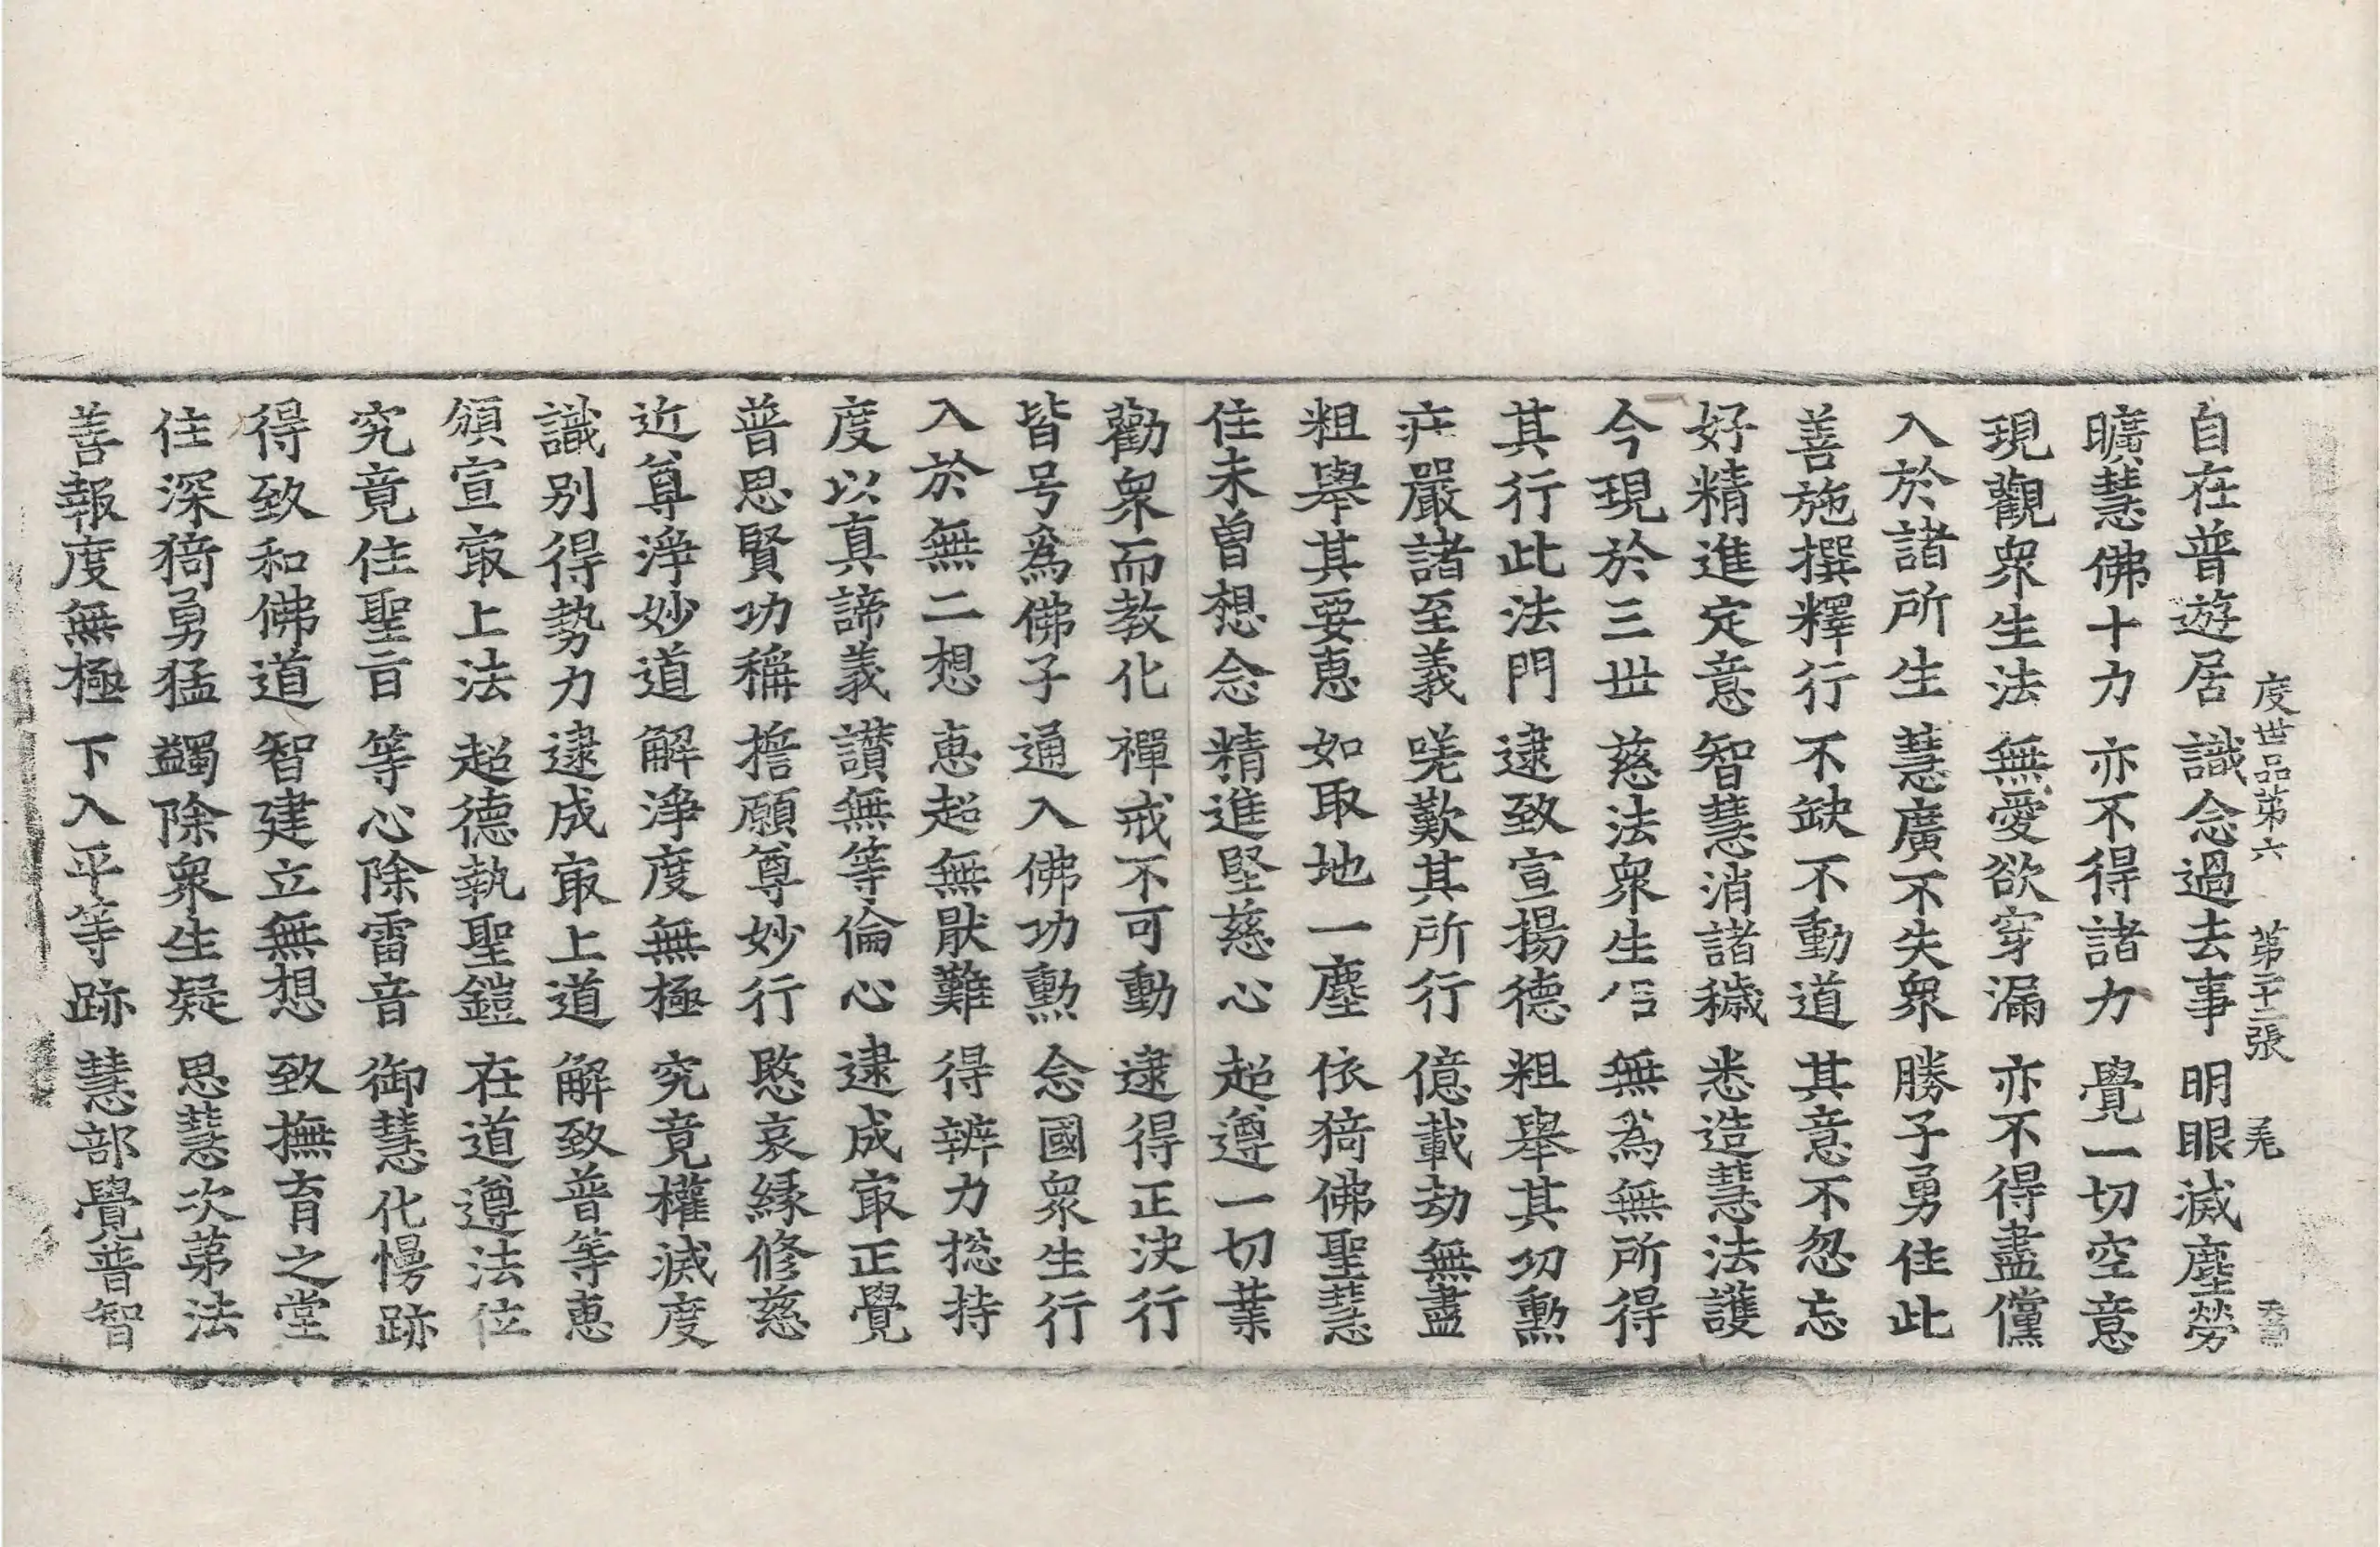 度世品第六 第二十二張 羌
自在普遊居 識念過去事 明眼滅塵勞
曠慧佛十力 亦不得諸力 覺一切空意
現觀衆生法 無愛欲穿漏 亦不得盡儻
入於諸所生 慧廣不失衆 勝子勇住此
善施撰釋行 不缺不動道 其意不忽忘
好精進定意 智慧消諸穢 悉造慧法護
今現於三世 慈法衆生 無為無所得
其行此法門 逮致宣揚德 粗舉其功勳
嚴諸至義 嗟歎其所行 億載劫無盡
粗舉其要惠 如取地一塵 依猗佛聖慧
住未曾想念 精進堅慈心 超遵一切業
勸衆而教化 禪戒不可動 逮得正決行
皆号爲佛子 通入佛功勳 念國衆生行
入於無二想 惠超無猒難 得辨力捴持
度以真諦義 讃無等倫心 逮成㝡正覺
普思賢功稱 擔願尊妙行 愍哀縁修慈
近尊淨妙道 解淨度無極 究竟權滅度
識别得勢力 逮成㝡上道 解致普等惠
頒宣㝡上法 超德執聖鎧 在道遵法位
究竟住聖旨 等心除雷音 御慧化慢跡
得致和佛道 智建立無想 致撫育之堂
住深猗勇猛 蠲除衆生疑 思慧次苐法
善報度無極 下入平等跡 慧部覺普智